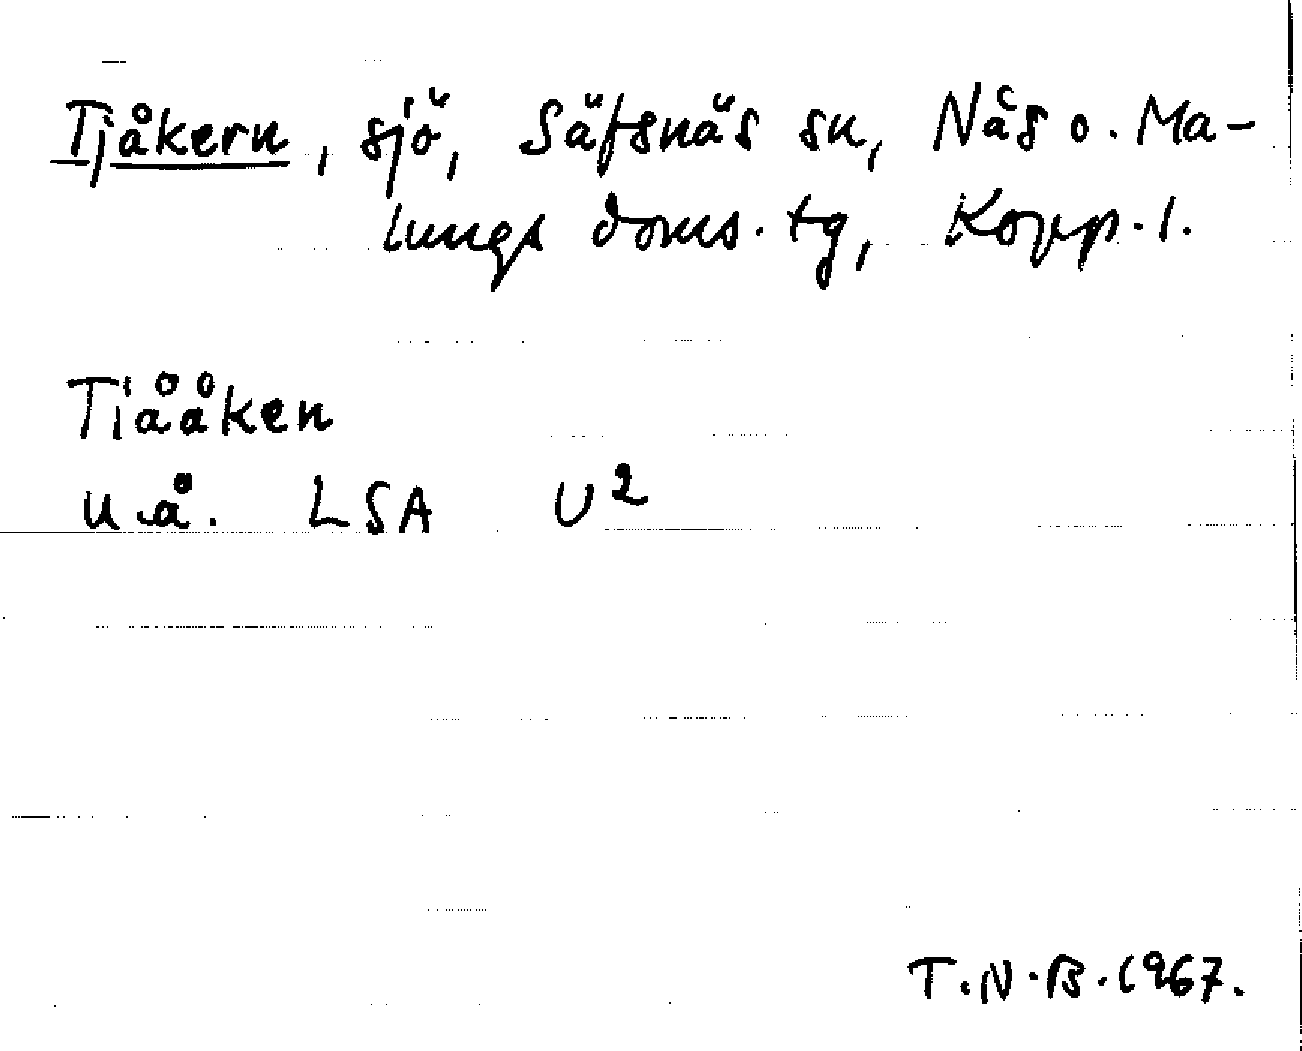 Tjåkern, sjö, Säfsnäs sn, Nås o. Ma-
lungs doms. tg, Kopp. l.
Tiååken
u.å. LSA U²
T.N.B. 1967.